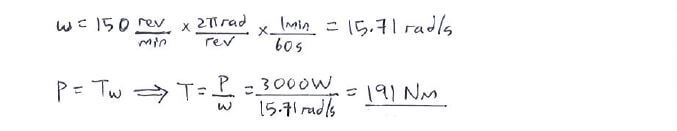 ω = 150 rev/min × 2π rad/rev × 1min/60s = 15.71 rad/s
P = Tω ⟹ T = P/ω = 3000W/15.71 rad/s = 191 Nm